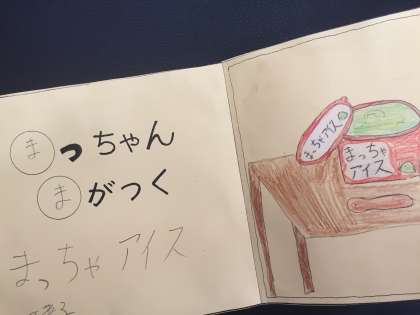 まっちゃん
まがつく
まっちゃアイス
まっちゃアイス
まっちゃ
アイス